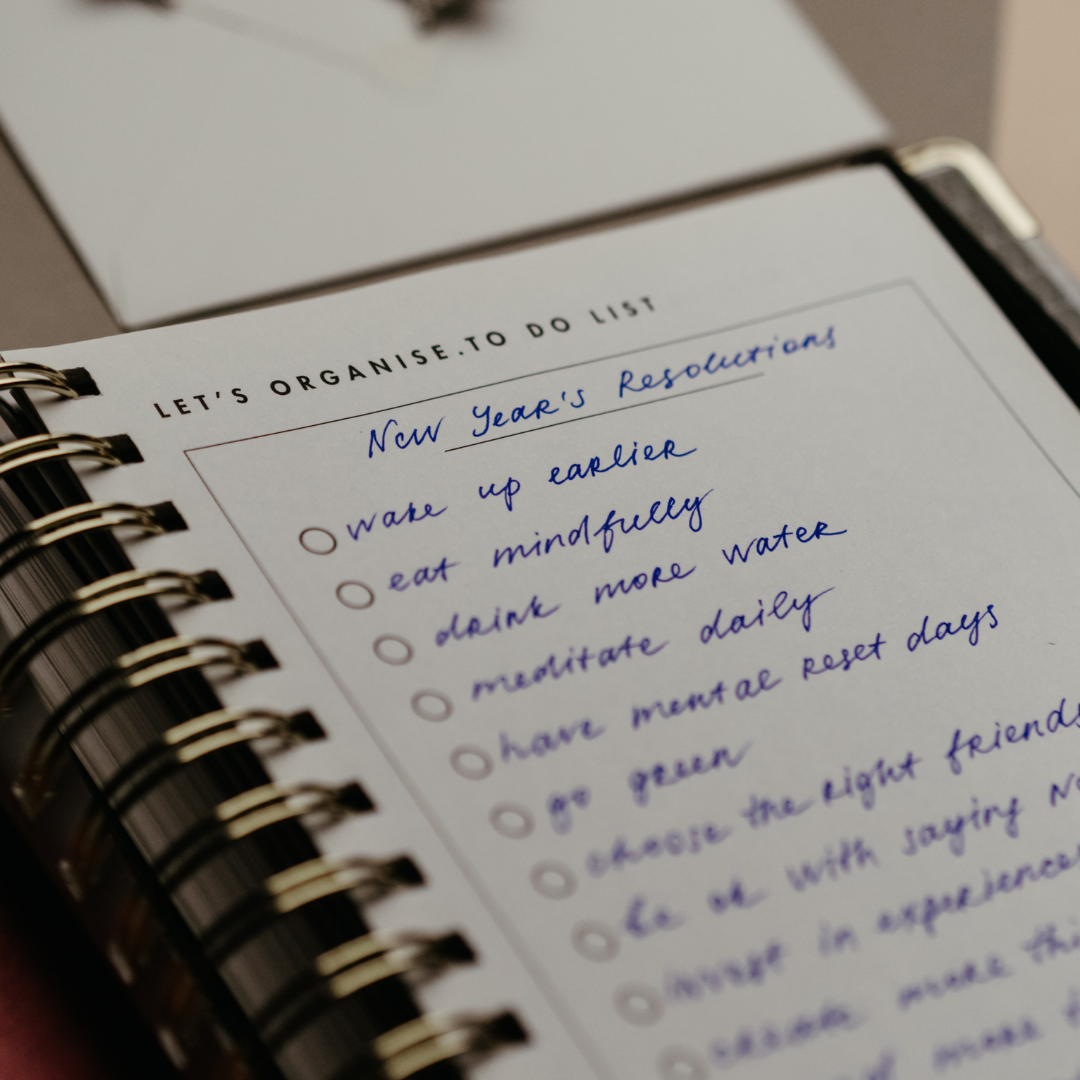 LET'S ORGANISE.TO DO LIST
New Year's Resolutions
wake up earlier
eat mindfully
drink more water
meditate daily
have mental reset days
go green
choose the right friends
be ok with saying No
invest in experiences
create more
more